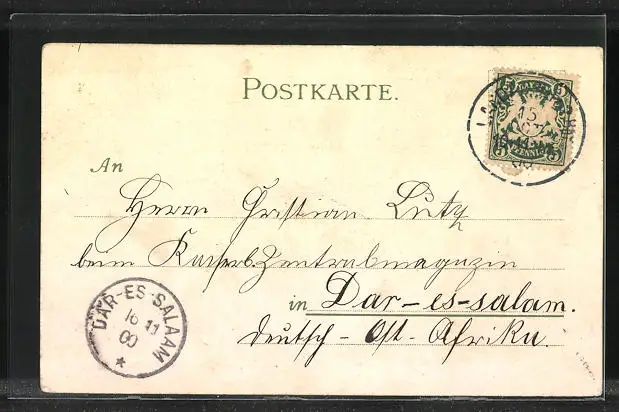 POSTKARTE.
BAYERN
5 5
PFENNIG
5 5
15
An
Herrn Christian Lutz
beim Kaiserl. Zentralmagazin
in Dar-es-salam.
Deutsch-Ost-Afrika.
DAR-ES-SALAAM
16 11
00
*